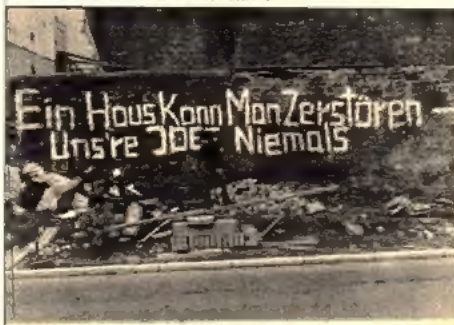 Ein Haus Kann Man Zerstören
Uns're IDEE Niemals